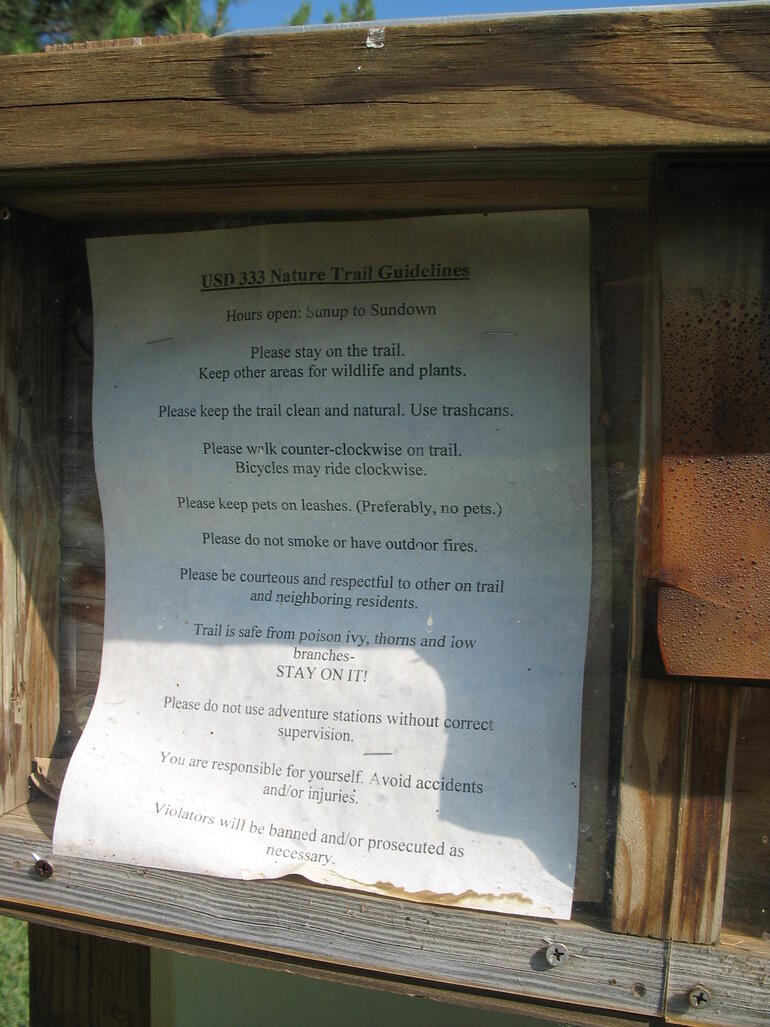 USD 333 Nature Trail Guidelines
Hours open: Sunup to Sundown
Please stay on the trail.
Keep other areas for wildlife and plants.
Please keep the trail clean and natural. Use trashcans.
Please walk counter-clockwise on trail.
Bicycles may ride clockwise.
Please keep pets on leashes. (Preferably, no pets.)
Please do not smoke or have outdoor fires.
Please be courteous and respectful to other on trail
and neighboring residents.
Trail is safe from poison ivy, thorns and low
branches-
STAY ON IT!
Please do not use adventure stations without correct
supervision.
You are responsible for yourself. Avoid accidents
and/or injuries.
Violators will be banned and/or prosecuted as
necessary.